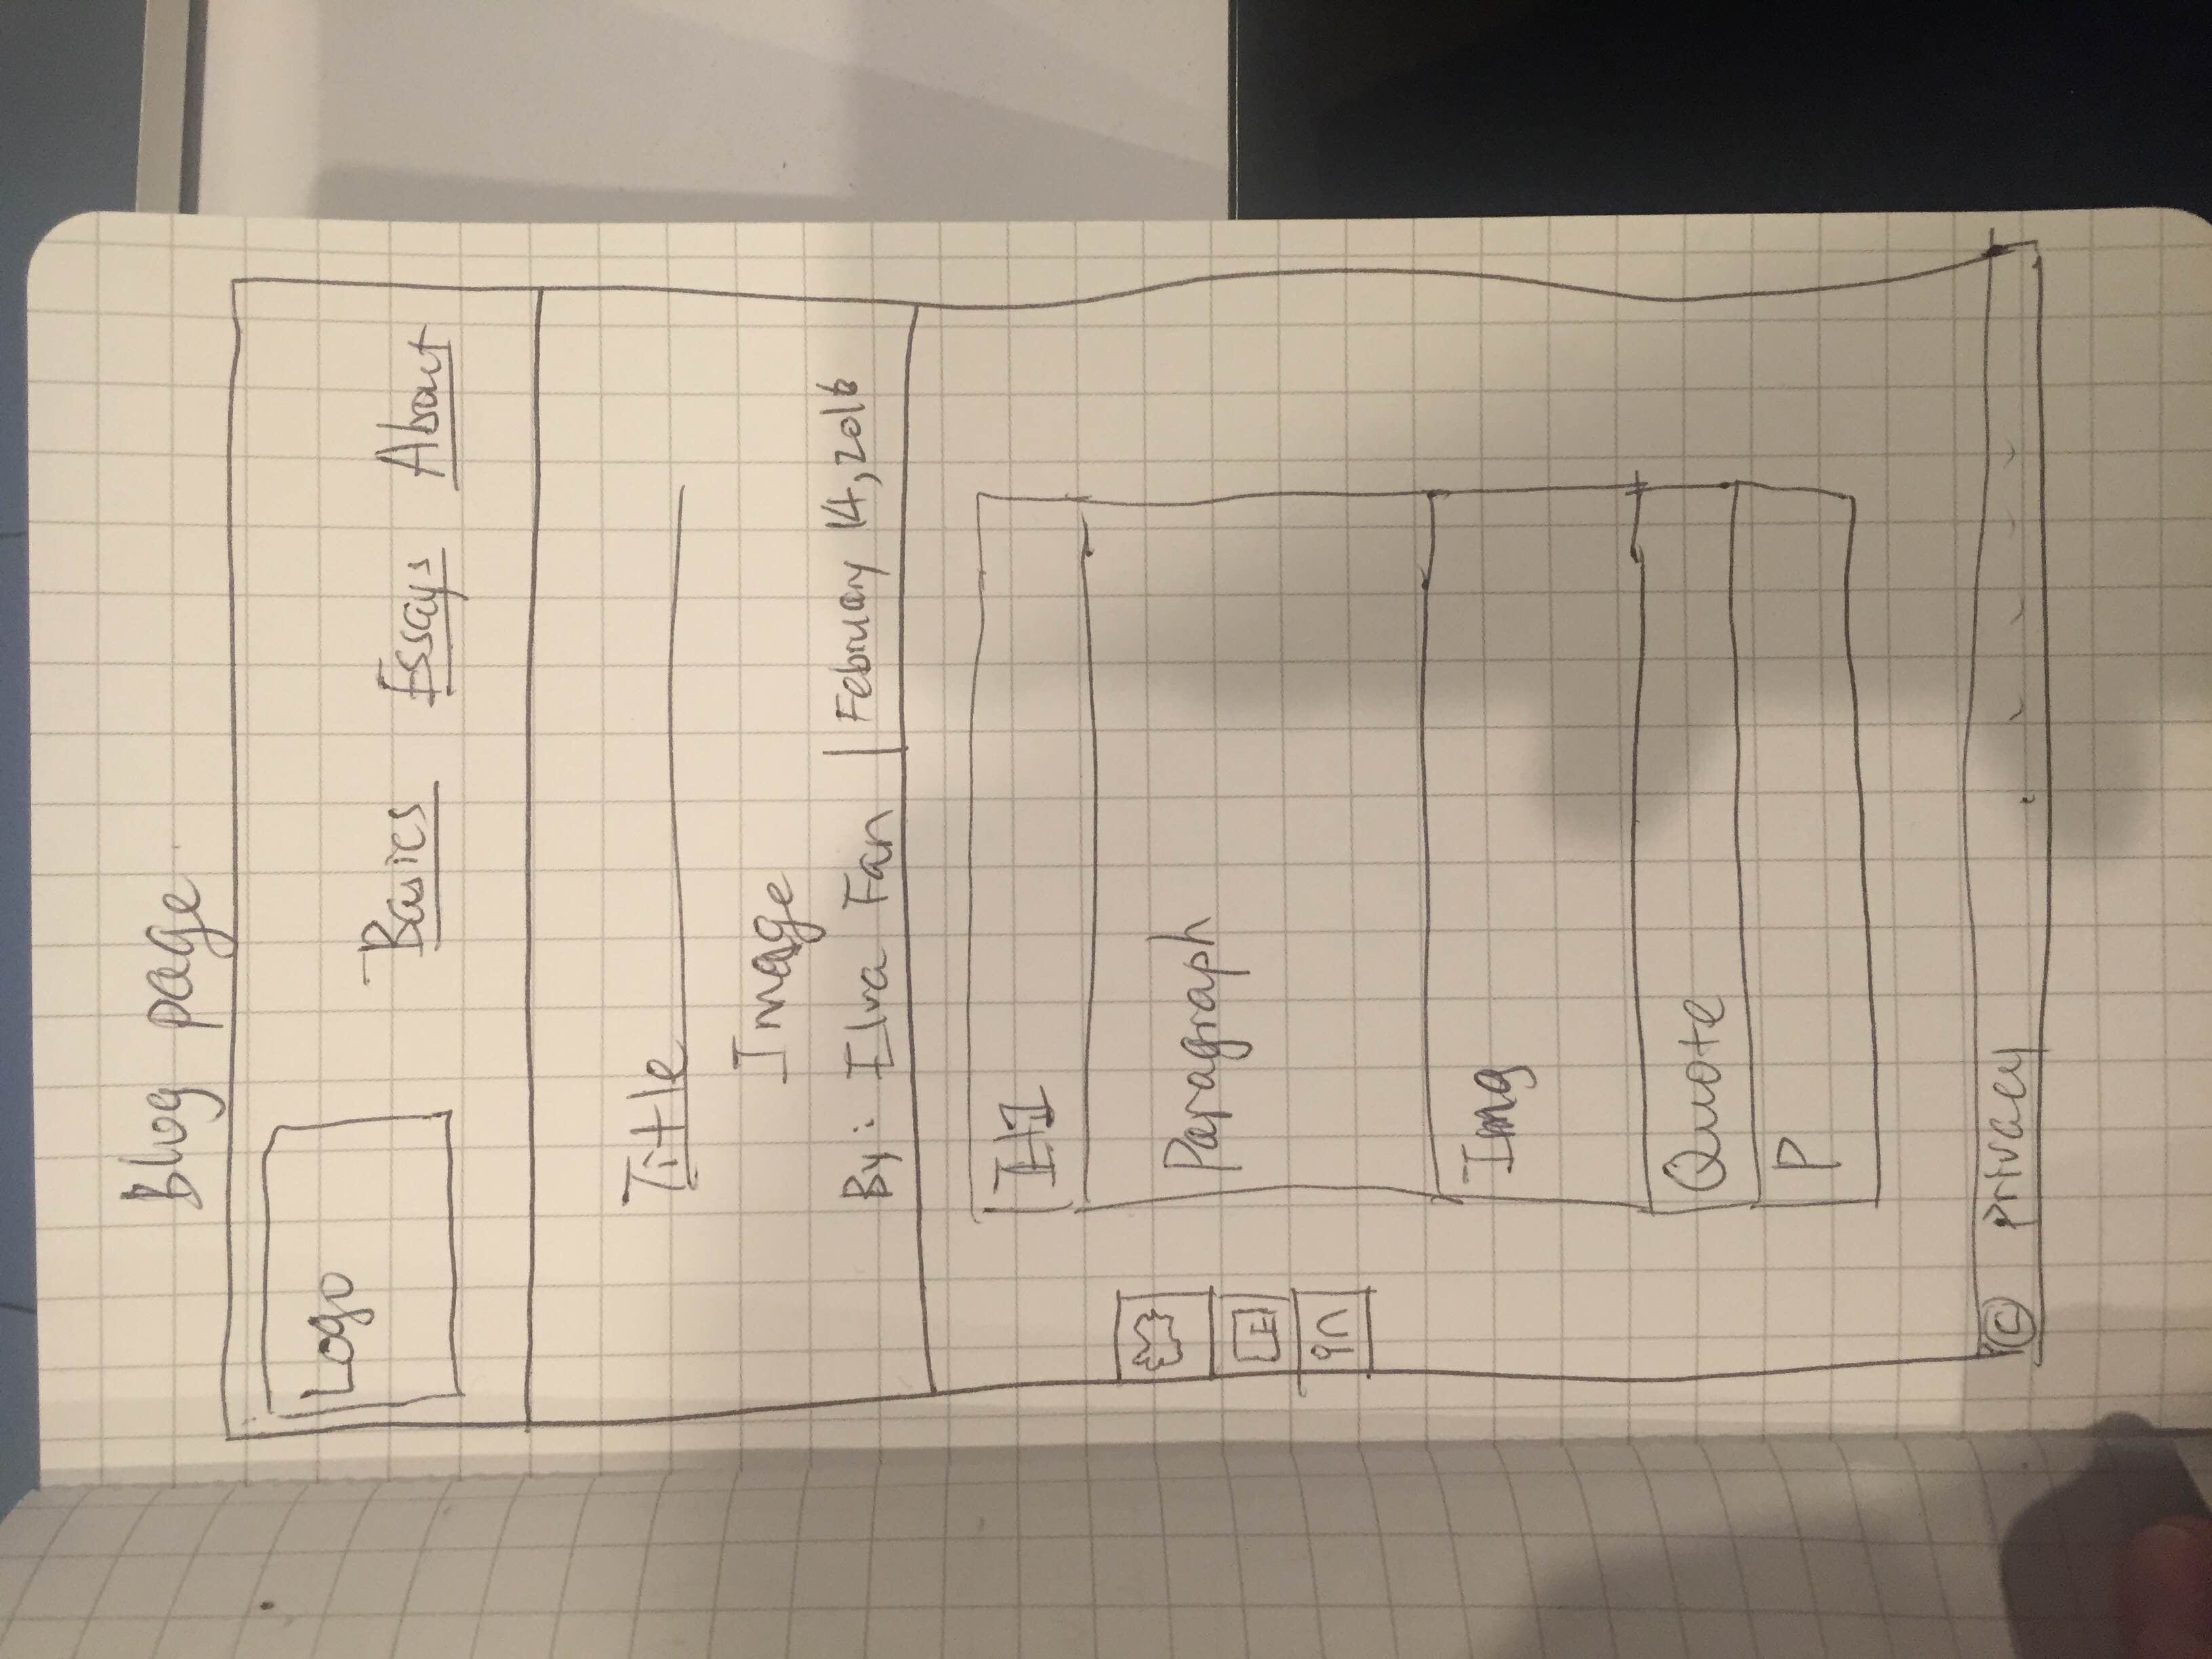 Blog page
Logo
Basics Essays About
Title
Image
By: Elva Fan | February 14, 2016
H1
Paragraph
in
Img
Quote
P
© privacy